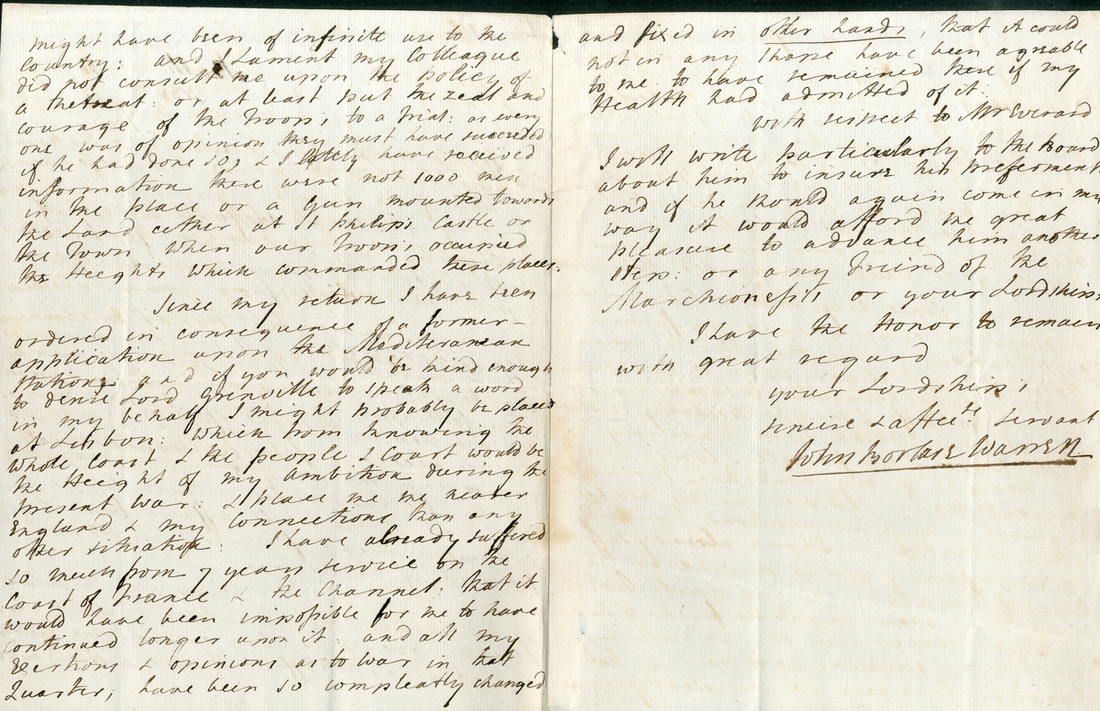 might have been of infinite use to the
Country: and I Lament my Colleague
did not consult me upon the policy of
a theat: or at least put the zeal and
courage of the Troops, to a Trial: as every
one was of opinion they must have succeeded
if he had done so; & I lately have received
information there were not 1000 men
in the place or a Gun mounted towards
the Land either at St Philips Castle or
the Town when our Troops, occupied
the Heights which commanded these places.
Since my return I have been
ordered in consequence of a former
application upon the Mediteranean
Station; and if you would be kind enough
to desire Lord Grenville to speak a word
in my behalf I might probably be placed
at Lisbon: which from knowing the
whole Coast & the people & Court would be
the Height of my Ambition during the
present War: & place me me nearer
England & my Connections than any
other situation: I have already suffered
so much from 7 years service on the
Coast of France & the Channel: that it
would have been impossible for me to have
continued longer upon it: and all my
Exertions & opinions as to War in that
Quarter, have been so compleatly changed
and fixed in other hands, that it could
not in any Shape have been agreable
to me to have remained there if my
Health had admitted of it.
with respect to Mr Everard
I will write particularly to the Board
about him to insure his preferment
and if he should again come in my
way it would afford me great
pleasure to advance him another
step: or any Friend of the
Marchioness's or your Lordships
I have the Honor to remain
with great regard
your Lordships,
sincere & affecte servant
John Borlase Warren